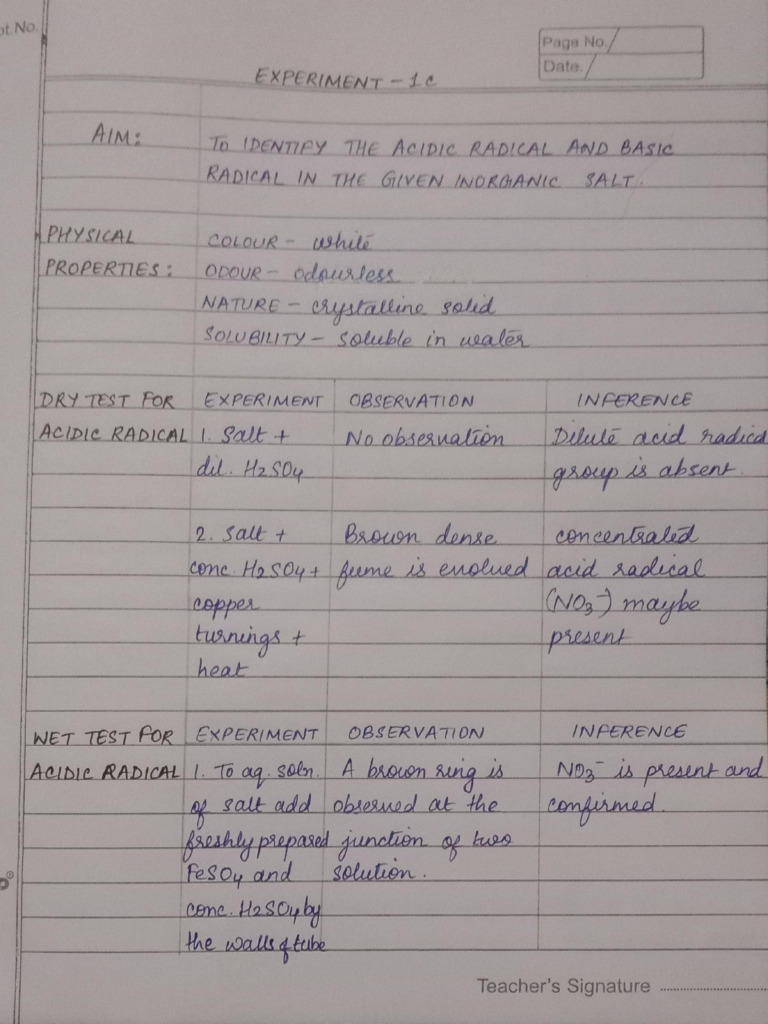 pt. No.
Page No.
Date.
EXPERIMENT - 1 C
AIM: TO IDENTIFY THE ACIDIC RADICAL AND BASIC
RADICAL IN THE GIVEN INORGANIC SALT.
PHYSICAL COLOUR - white
PROPERTIES: ODOUR - odourless
NATURE - crystalline solid
SOLUBILITY - soluble in water
DRY TEST FOR EXPERIMENT OBSERVATION INFERENCE
ACIDIC RADICAL 1. Salt + No observation Dilute acid radical
dil. H2SO4 group is absent.
2. Salt + Brown dense concentrated
conc. H2SO4 + fume is evolved acid radical
copper (NO3-) maybe
turnings + present
heat
WET TEST FOR EXPERIMENT OBSERVATION INFERENCE
ACIDIC RADICAL 1. To aq. soln. A brown ring is NO3- is present and
of salt add observed at the confirmed.
freshly prepared junction of two
FeSO4 and solution.
conc. H2SO4 by
the walls of tube
Teacher's Signature